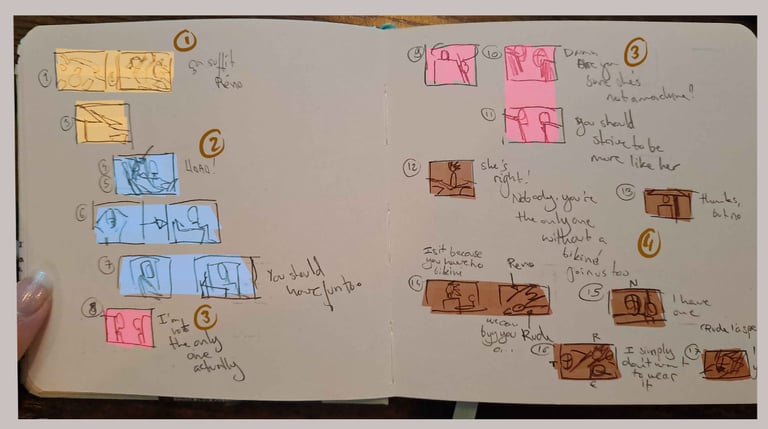 1
1
ça suffit
Réno
3
2
4
5
HOAA!
6
7
You should
have fun too.
8
3
I'm not
the only
one
actually
9
10
3
Damn
are you
sure she's
not a machine?
11
You should
strive to be
more like her
12
she's
right!
Nobody. you're
the only one
without a
bikini
join us too
13
thanks,
but no
4
14
Is it because
you have no
bikini
Reno
we can
buy you
Rude
15
N
I have
one
16
R
T
E
I simply
don't want
to wear
it
17